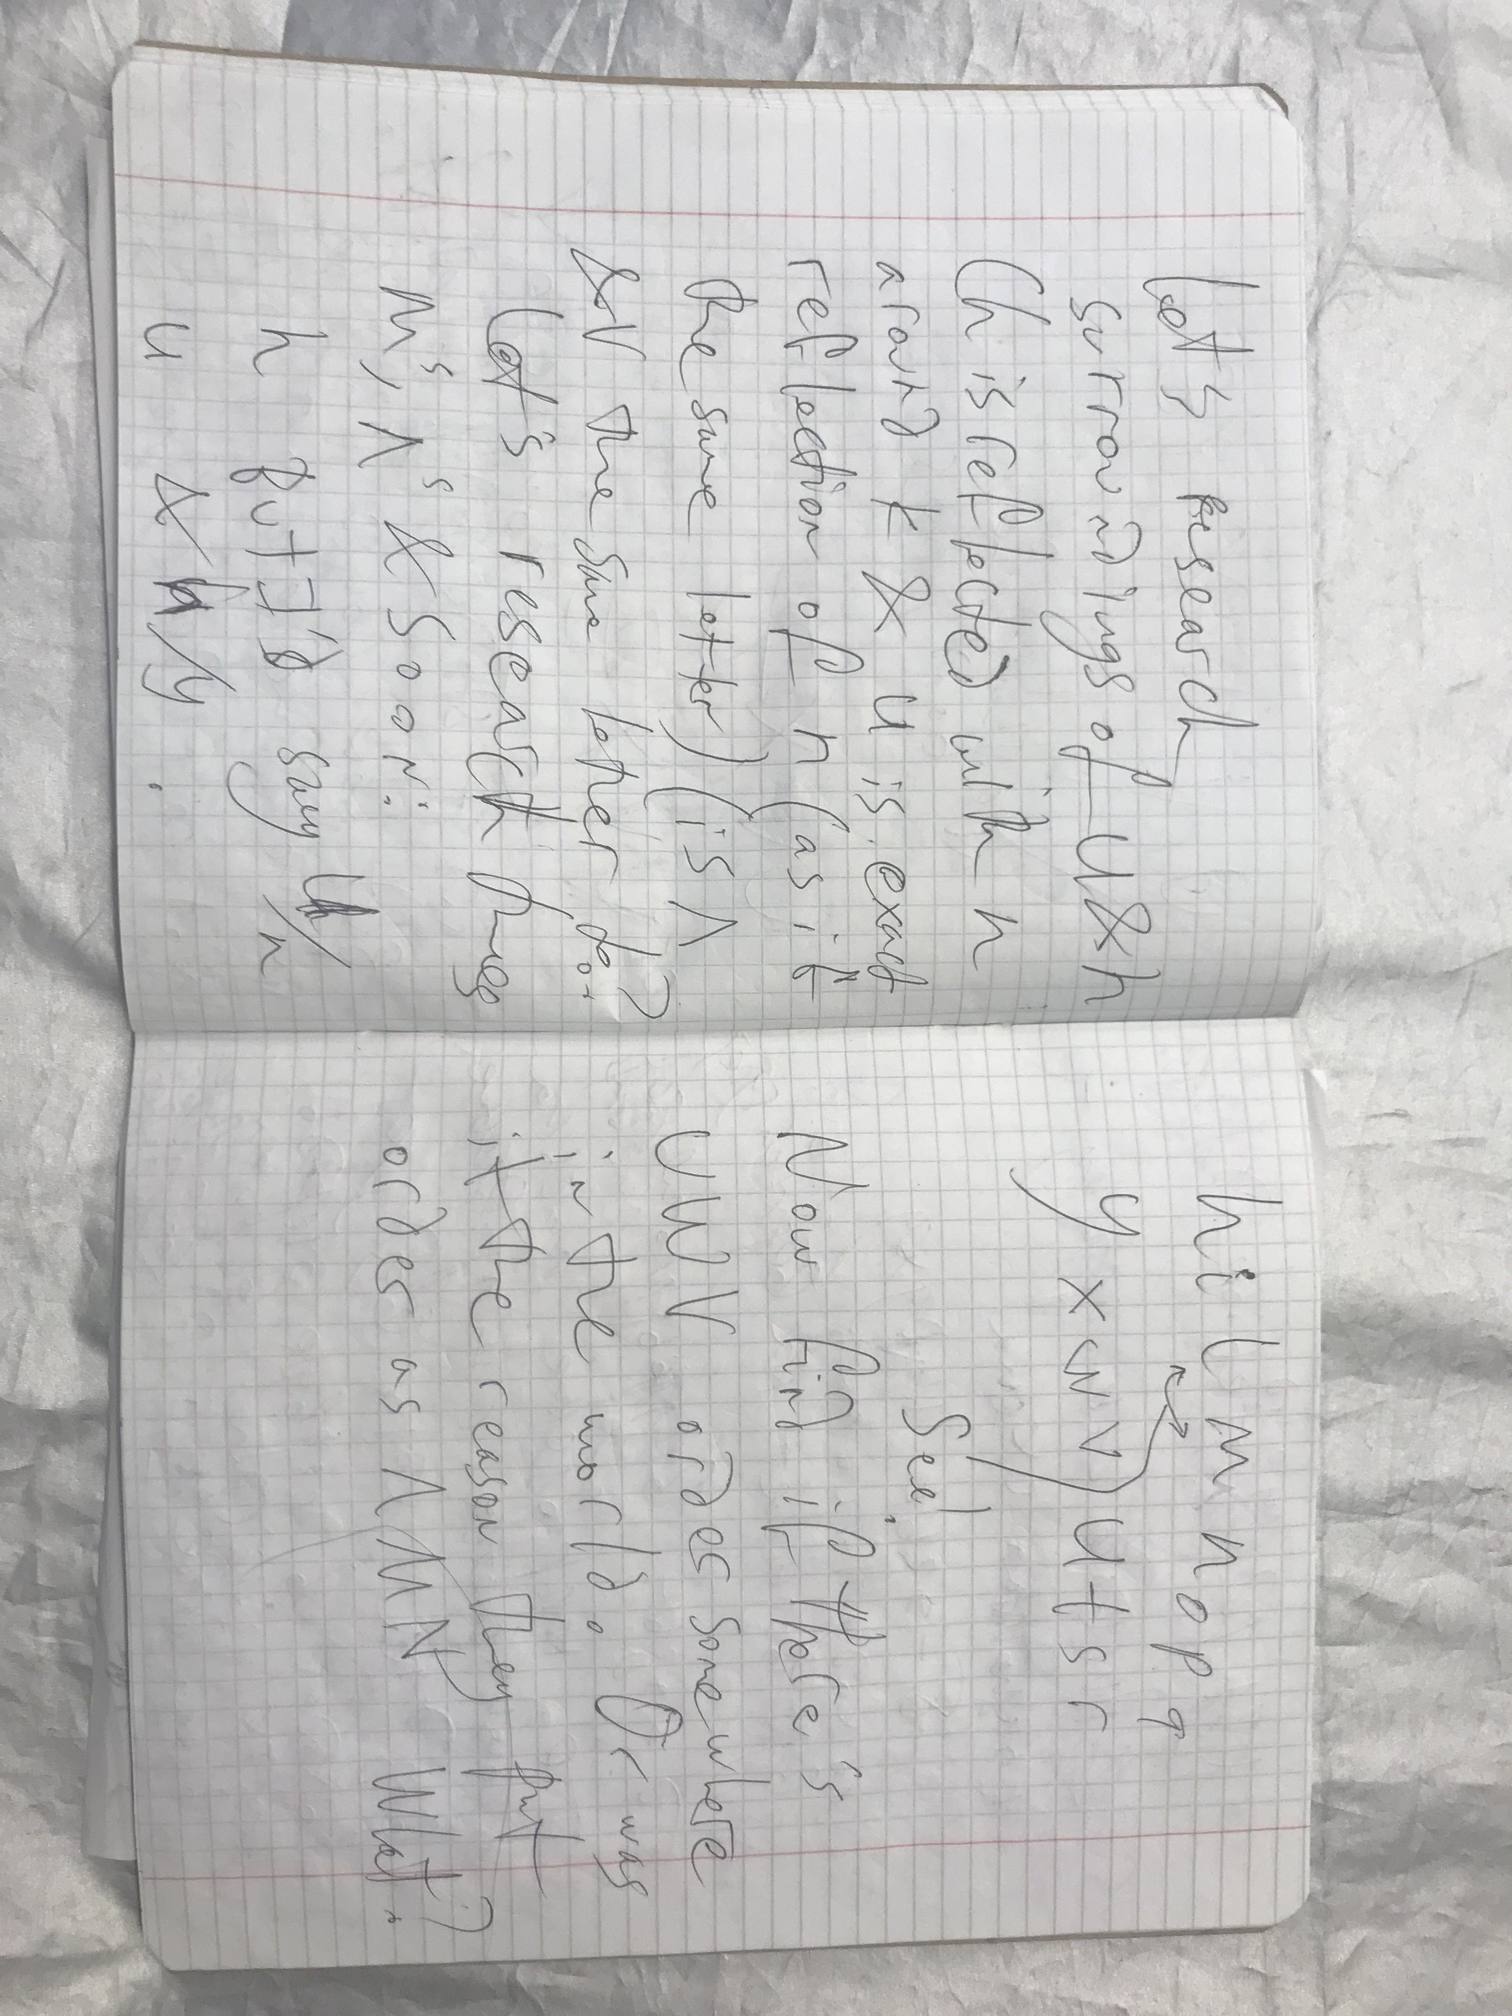 Let's research
surroundings of u & h
(h is reflected with n
around t & u is exact
reflection of n (as if
the same letter) (is Λ
& V the same letter dor?
Let's research things
m's, Λ's & soon:
h But I'd say /n
u & h/y .
h i l m n o p q
y x w v) u t s r
See!
Now find if there's
U W V order somewhere
in the world. Or was
it the reason they put
order as Λ M N What?